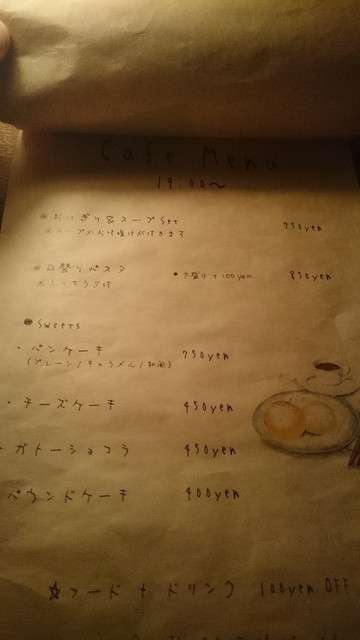 Cafe Menu
14:00~
おにぎり&スープset 750yen
※スープかお味噌汁が付きます
日替りパスタ ●大盛り+100yen 850yen
※ミニサラダ付
Sweets
・パンケーキ 750yen
(プレーン/キャラメル/和風)
・チーズケーキ 450yen
・ガトーショコラ 450yen
パウンドケーキ 400yen
☆フード+ドリンク 100yen OFF